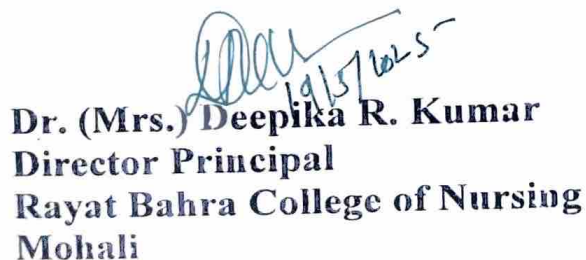 19/5/2025
Dr. (Mrs.) Deepika R. Kumar
Director Principal
Rayat Bahra College of Nursing
Mohali